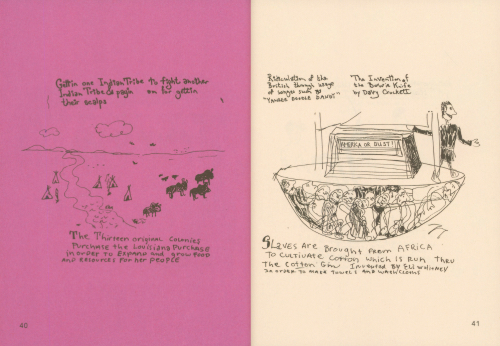 Gettin one Indian Tribe to fight another
Indian Tribe & payin em for gettin
their scalps
The Thirteen original Colonies
Purchase the Louisiana Purchase
in order to Expand and grow food
and resources for her people
40
Ridiculation of the
British through usage
of songs such as
"YANKEE DOODLE DANDY"
The Invention of
the Bowie Knife
by Davy Crockett
AMERICA OR BUST!
SLAVES ARE BROUGHT FROM AFRICA
TO CULTIVATE COTTON WHICH IS RUN THRU
THE COTTON GIN INVENTED BY ELI WHITNEY
IN ORDER TO MAKE TOWELS AND WASHCLOTHS
41